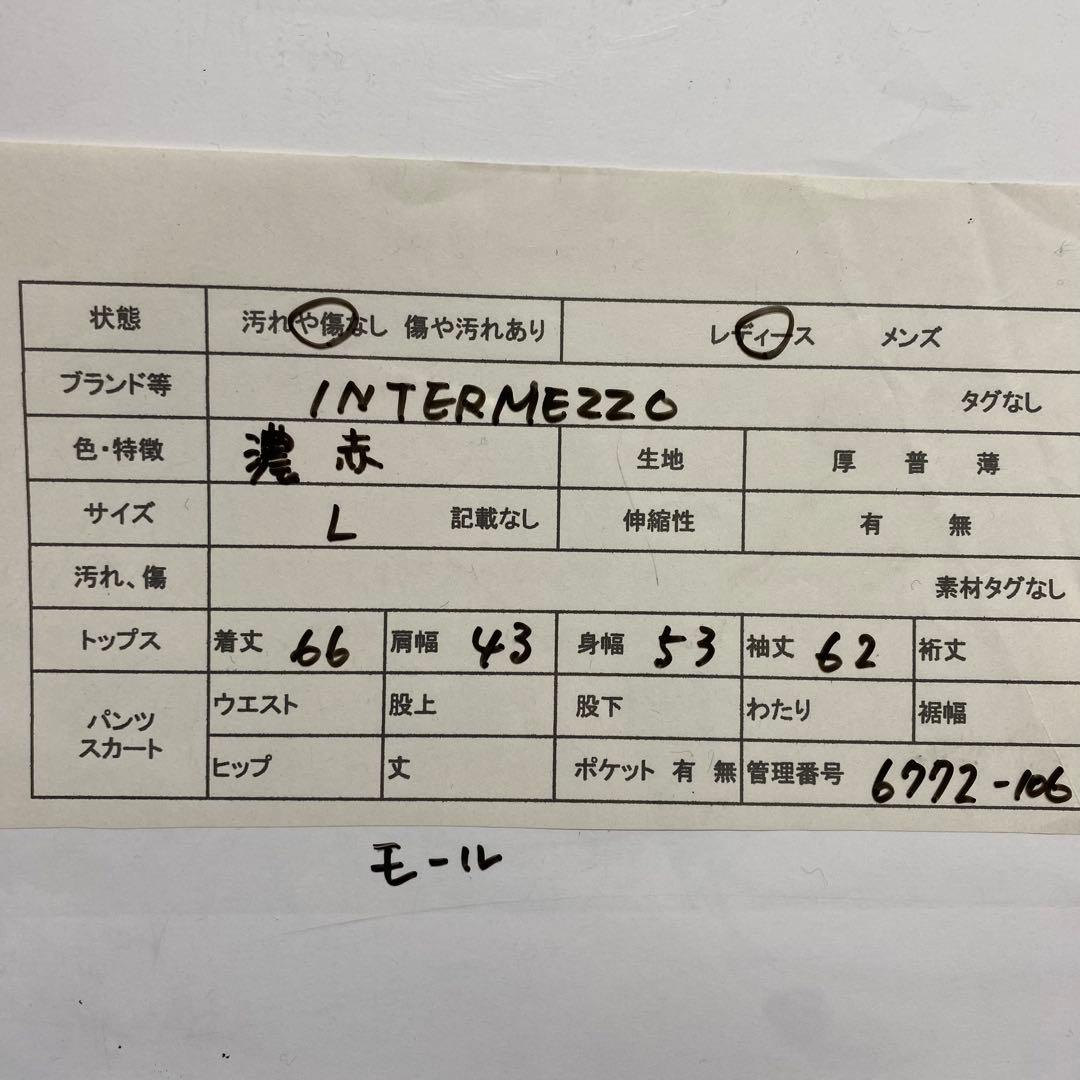 状態 汚れや傷なし 傷や汚れあり レディース メンズ
ブランド等 INTERMEZZO タグなし
色・特徴 濃赤 生地 厚 普 薄
サイズ L 記載なし 伸縮性 有 無
汚れ、傷 素材タグなし
トップス 着丈 66 肩幅 43 身幅 53 袖丈 62 裄丈
パンツ スカート ウエスト 股上 股下 わたり 裾幅
ヒップ 丈 ポケット 有 無 管理番号 6772-106
モール